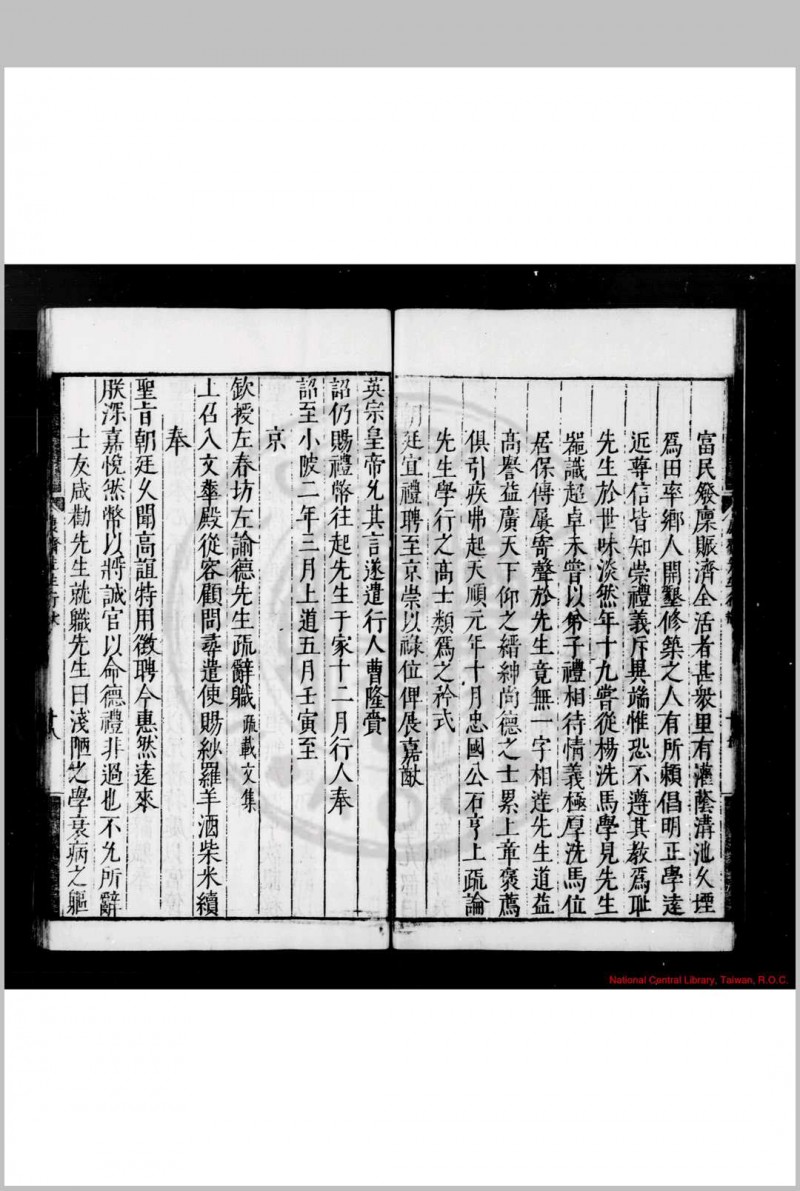 富民發廩賑濟全活者甚衆里有灌蔭溝池久堙
爲田率鄉人開墾修築之人有所賴倡明正學遠
近尊信皆知崇禮義斥異端惟恐不遵其教爲耻
先生於世味淡然年十九嘗從楊洗馬學見先生
器識超卓未嘗以弟子禮相待情義極厚洗馬位
居保傅屢寄聲於先生竟無一字相達先生道益
高譽益廣天下仰之縉紳尚德之士累上章褒薦
俱引疾弗起天順元年十月忠國公石亨上疏論
先生學行之高士類爲之矜式
朝廷宜禮聘至京崇以祿位俾展嘉猷
英宗皇帝允其言遂遣行人曹隆賫
詔仍賜禮幣往起先生于家十二月行人奉
詔至小陂二年三月上道五月壬寅至
京
欽授左春坊左諭德先生疏辭職疏載文集
上召入文華殿從容顧問尋遣使賜紗羅羊酒柴米續
奉
聖旨朝廷久聞高誼特用徵聘今惠然遠來
朕深嘉悅然幣以將誠官以命德禮非過也不允所辭
士友咸勸先生就職先生曰淺陋之學衰病之軀
National Central Library, Taiwan, R.O.C.